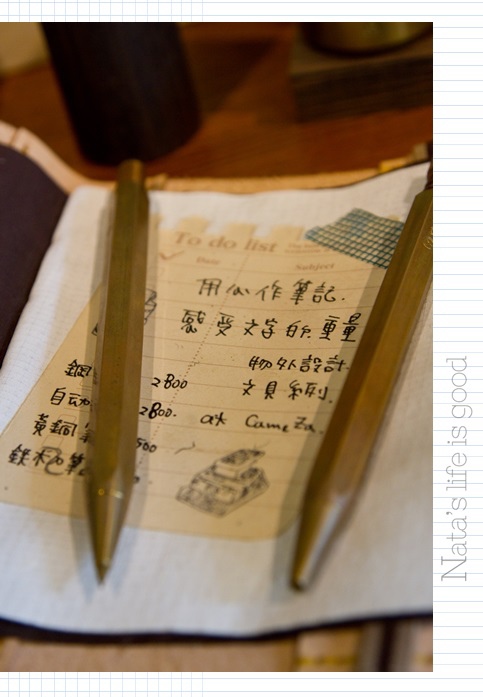 To do list
Date
Subject
用心作筆記.
感受文字的重量
物外設計
文具系列.
at Came Za.
鋼
2800
自動
2800.
黃銅
500
鉄材 筆
Nata's life is good